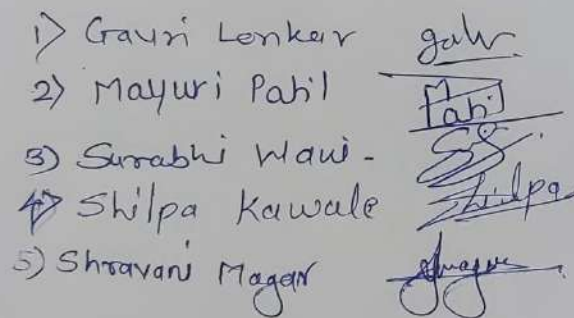 1) Gauri Lonkar
2) Mayuri Patil Patil
3) Surabhi
4) Shilpa Kawale Shilpa
5) Shravani Magar